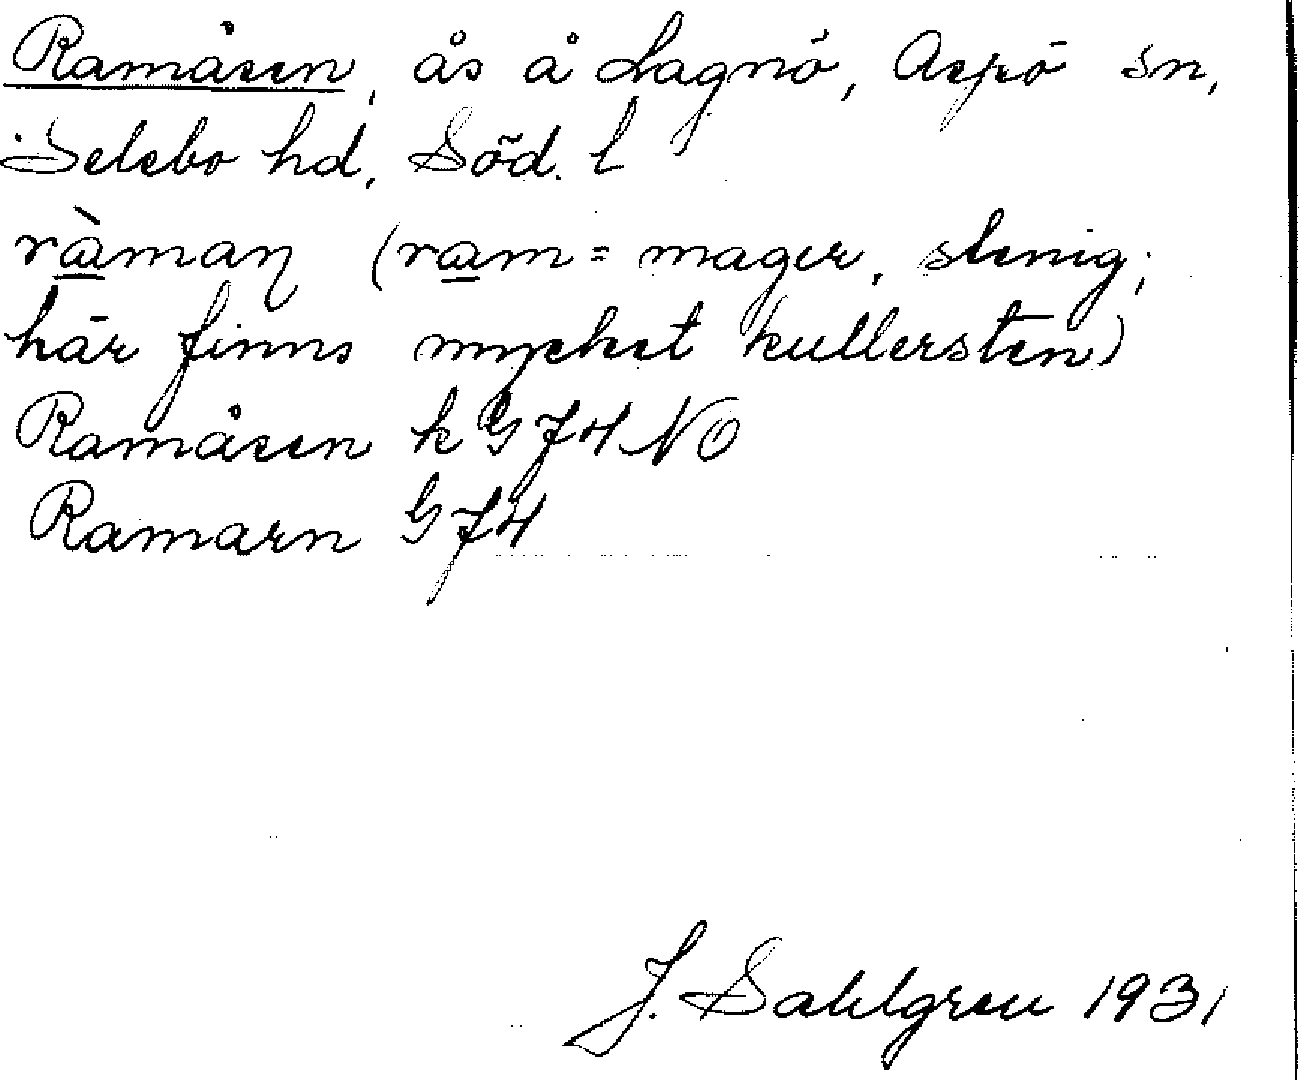 Ramåsen, ås å Lagnö, Aspö sn,
Selebo hd, Söd. l
ràmaꞃ (ram = mager, stenig;
här finns mycket kullersten)
Ramåsen k G 74 NO
Ramarn G 74
J. Sahlgren 1931